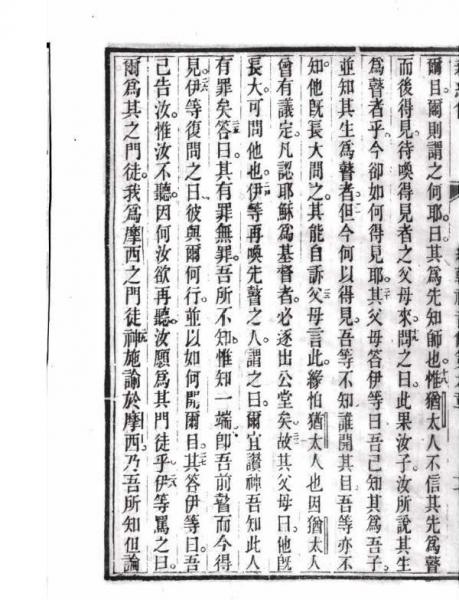 爾目爾則謂之何耶曰其為先知師也惟猶太人不信其先為瞽
而後得見待喚得見者之父母來問之曰此果汝子汝所說其生
為瞽者乎今卻如何得見耶其父母答伊等曰吾已知其為吾子
並知其生為瞽者但今何以得見吾等不知誰開其目吾等亦不
知他既長大問之其能自訴父母言此緣怕猶太人也因猶太人
曾有議定凡認耶穌為基督者必逐出公堂矣故其父母曰他既
長大可問他也伊等再喚先瞽之人謂之曰爾宜讚神吾知此人
有罪矣答曰其有罪無罪吾所不知惟知一端卽吾前瞽而今得
見伊等復問之曰彼與爾何行並以如何開爾目其答伊等曰吾
已告汝惟汝不聽因何汝欲再聽汝願為其門徒乎伊等罵之曰
爾為其之門徒我為摩西之門徒神施諭於摩西乃吾所知但論